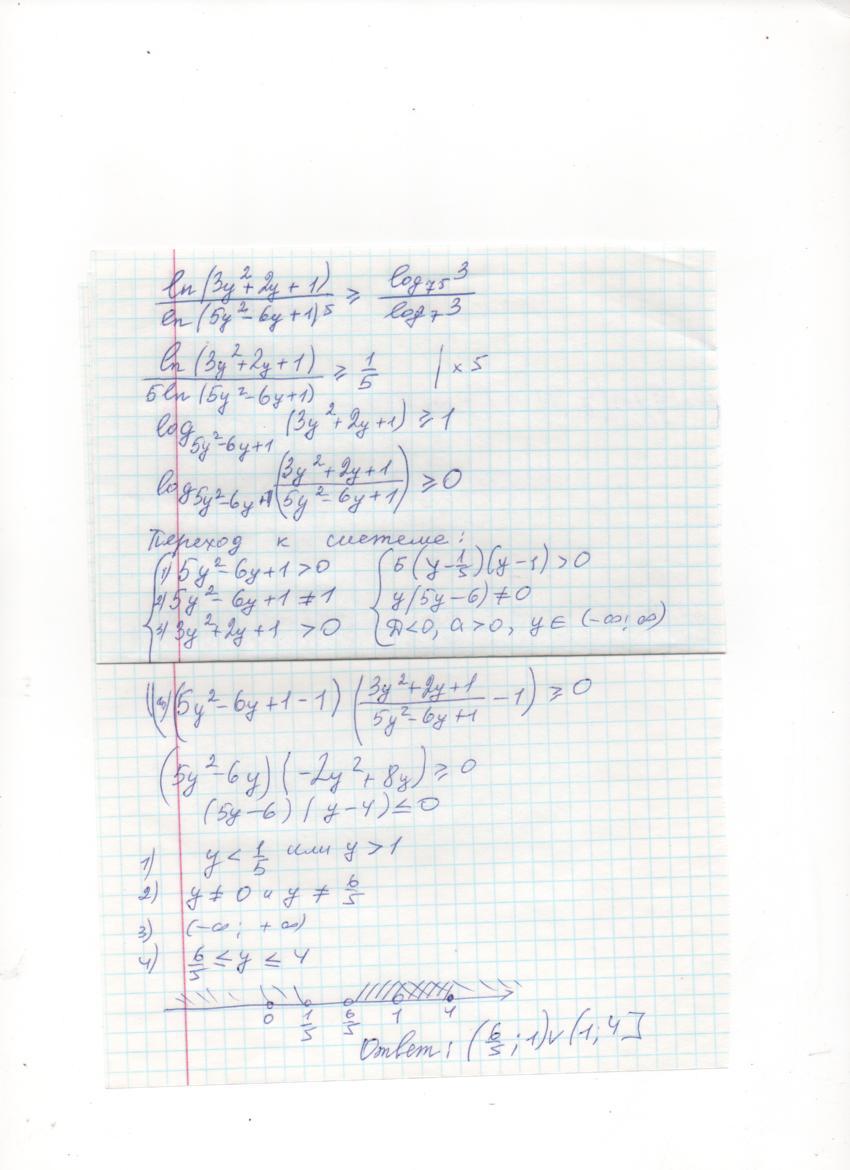 ln(3y²+2y+1) / ln(5y²-6y+1)⁵ ≥ log₇₅3 / log₇3
ln(3y²+2y+1) / 5ln(5y²-6y+1) ≥ 1/5 | × 5
log_{5y²-6y+1} (3y²+2y+1) ≥ 1
log_{5y²-6y+1} ((3y²+2y+1)/(5y²-6y+1)) ≥ 0
Переход к системе:
1) 5y²-6y+1 > 0 { 5(y-1/5)(y-1) > 0
2) 5y²-6y+1 ≠ 1 y(5y-6) ≠ 0
3) 3y²+2y+1 > 0 D<0, a>0, y ∈ (-∞; ∞)
(5y²-6y+1-1) ((3y²+2y+1)/(5y²-6y+1) - 1) ≥ 0
(5y²-6y)(-2y²+8y) ≥ 0
(5y-6)(y-4) ≤ 0
1) y < 1/5 или y > 1
2) y ≠ 0 и y ≠ 6/5
3) (-∞; +∞)
4) 6/5 ≤ y ≤ 4
0 1/5 6/5 1 4
Ответ: (6/5; 1) ∨ (1; 4]